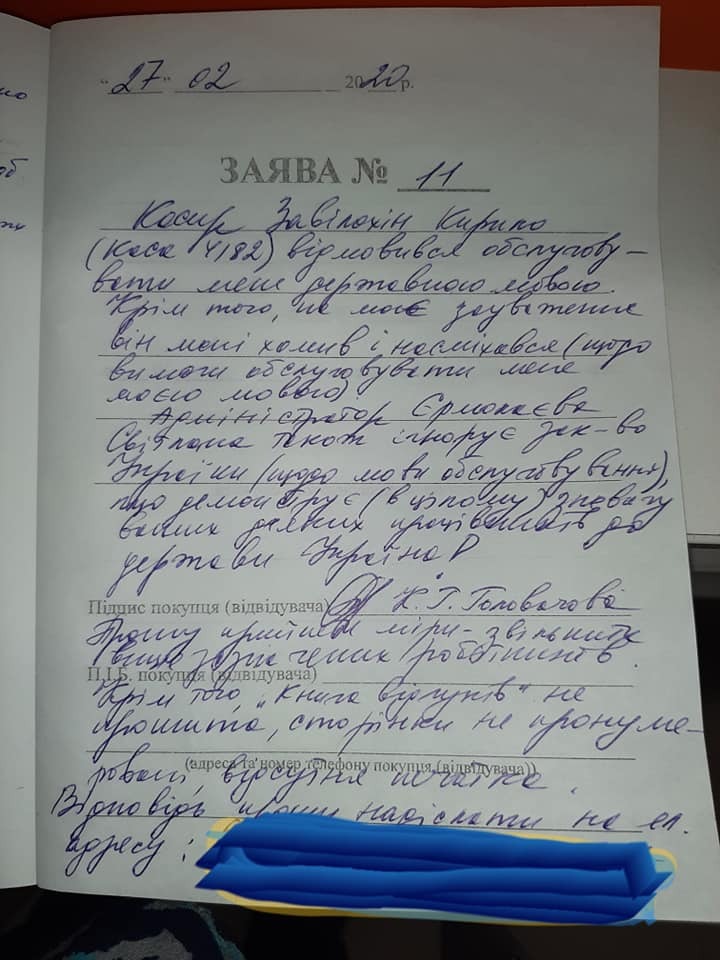 "27" 02 2020 р.
ЗАЯВА № 11
Касир Завілохін Кирило
(каса 4182) відмовився обслугову-
вати мене державною мовою.
Крім того, на моє зауваження
він мені хамив і насміхався (щодо
вимоги обслуговувати мене
моєю мовою)
Адміністратор Єрмолаєва
Світлана також ігнорує зак-во
України (щодо мови обслуговування),
що демонструє (в цілому) зневагу
ваших деяких працівників до
держави Україна!
Підпис покупця (відвідувача) К.Г. Головачова
Прошу прийняти міри - звільнити
вище зазначених робітників.
П.І.Б. покупця (відвідувача)
Крім того, "Книга відгуків" не
прошита, сторінки не пронуме-
(адреса та номер телефону покупця (відвідувача))
ровані, відсутня печатка.
Відповідь прошу надіслати на ел.
адресу: